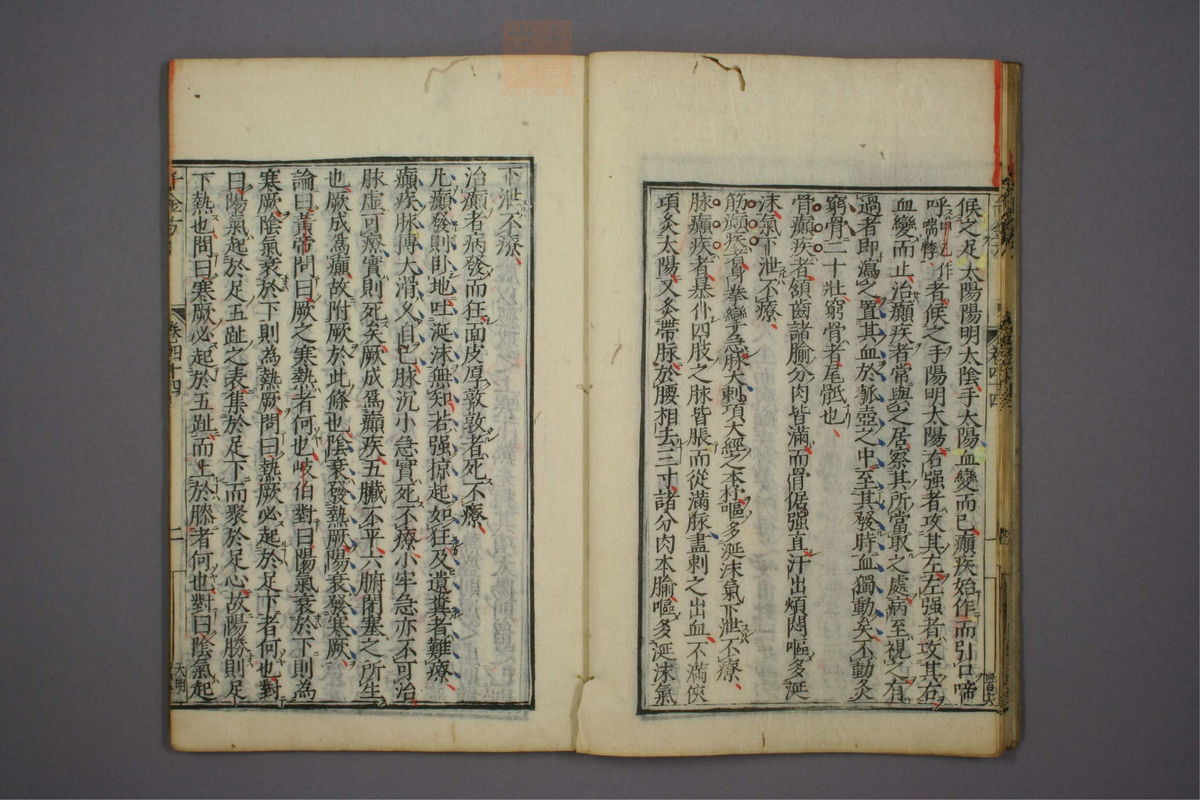 候之足太陽陽明太陰手太陽血變而已癲疾始作而引口啼
呼喘悸甲乙作者候之手陽明太陽右强者攻其左左强者攻其右
血變而止治癲疾者常與之居察其所當取之處病至視之有
過者即瀉之置其血於瓠壺之中至其發時血獨動矣不動灸
窮骨二十壯窮骨者尾骶也
骨癲疾者頷齒諸腧分肉皆滿而骨倨强直汗出煩悶嘔多涎
沫氣下泄不療
筋癲疾者身拳攣急脉大刺項大經之本杼嘔多涎沫氣下泄不療
脉癲疾者暴仆四肢之脉皆脹而從滿脉盡刺之出血不滿俠
項灸太陽又灸帶脉於腰相去三寸諸分肉本腧嘔多涎沫氣
下泄不療
治癲者病發而狂面皮厚敦敦者死不療
凡癲發則卧地吐涎沫無知若强掠起如狂及遺糞者難療
癲疾脉搏大滑久自已脉沉小急實死不療小牢急亦不可治
脉虛可療實則死矣厥成爲癲疾五臟不平六腑閉塞之所生
也厥成爲癲故附厥於此條也陰衰發熱厥陽衰發寒厥
論曰黃帝問曰厥之寒熱者何也岐伯對曰陽氣衰於下則爲
寒厥陰氣衰於下則爲熱厥問曰熱厥必起於足下者何也對
曰陽氣起於足五趾之表集於足下而聚於足心故陽勝則足
下熱也問曰寒厥必起於五趾而上於膝者何也對曰陰氣起
卷四十四
二